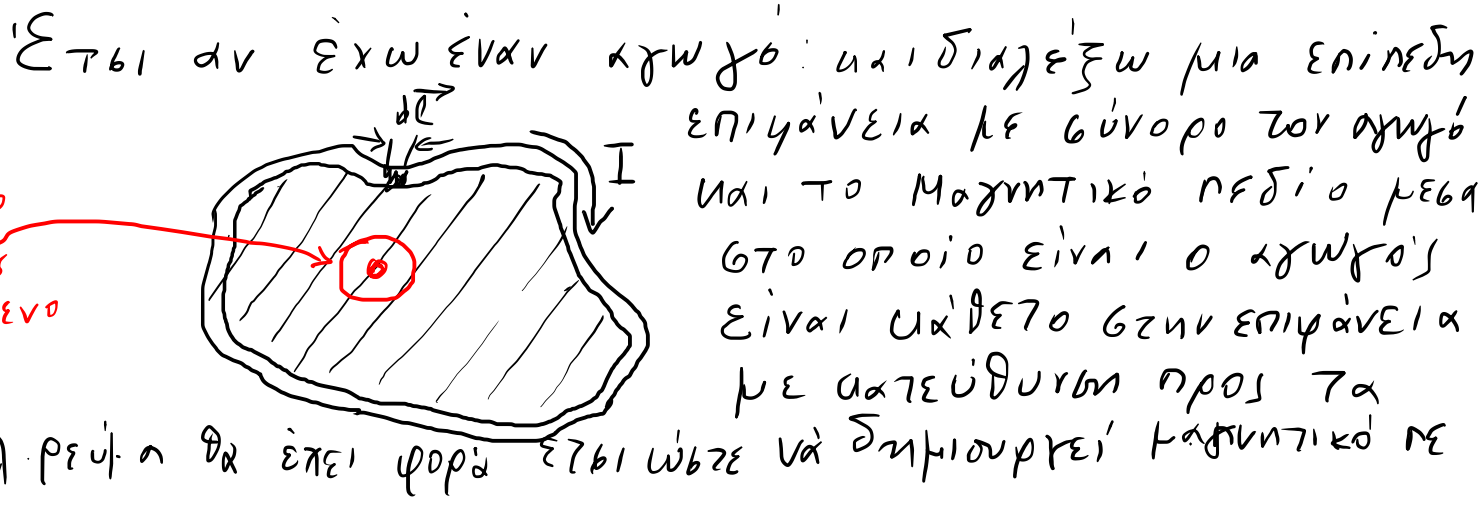 Έτσι αν έχω έναν αγωγό και διαλέξω μια επίπεδη
dl
επιφάνεια με σύνορο τον αγωγό
I
και το Μαγνητικό πεδίο μεσα
στο οποίο είναι ο αγωγός
είναι κάθετο στην επιφάνεια
με κατεύθυνση προς τα
ρεύμα θα έχει φορά έτσι ώστε νά δημιουργεί μαγνητικό πε